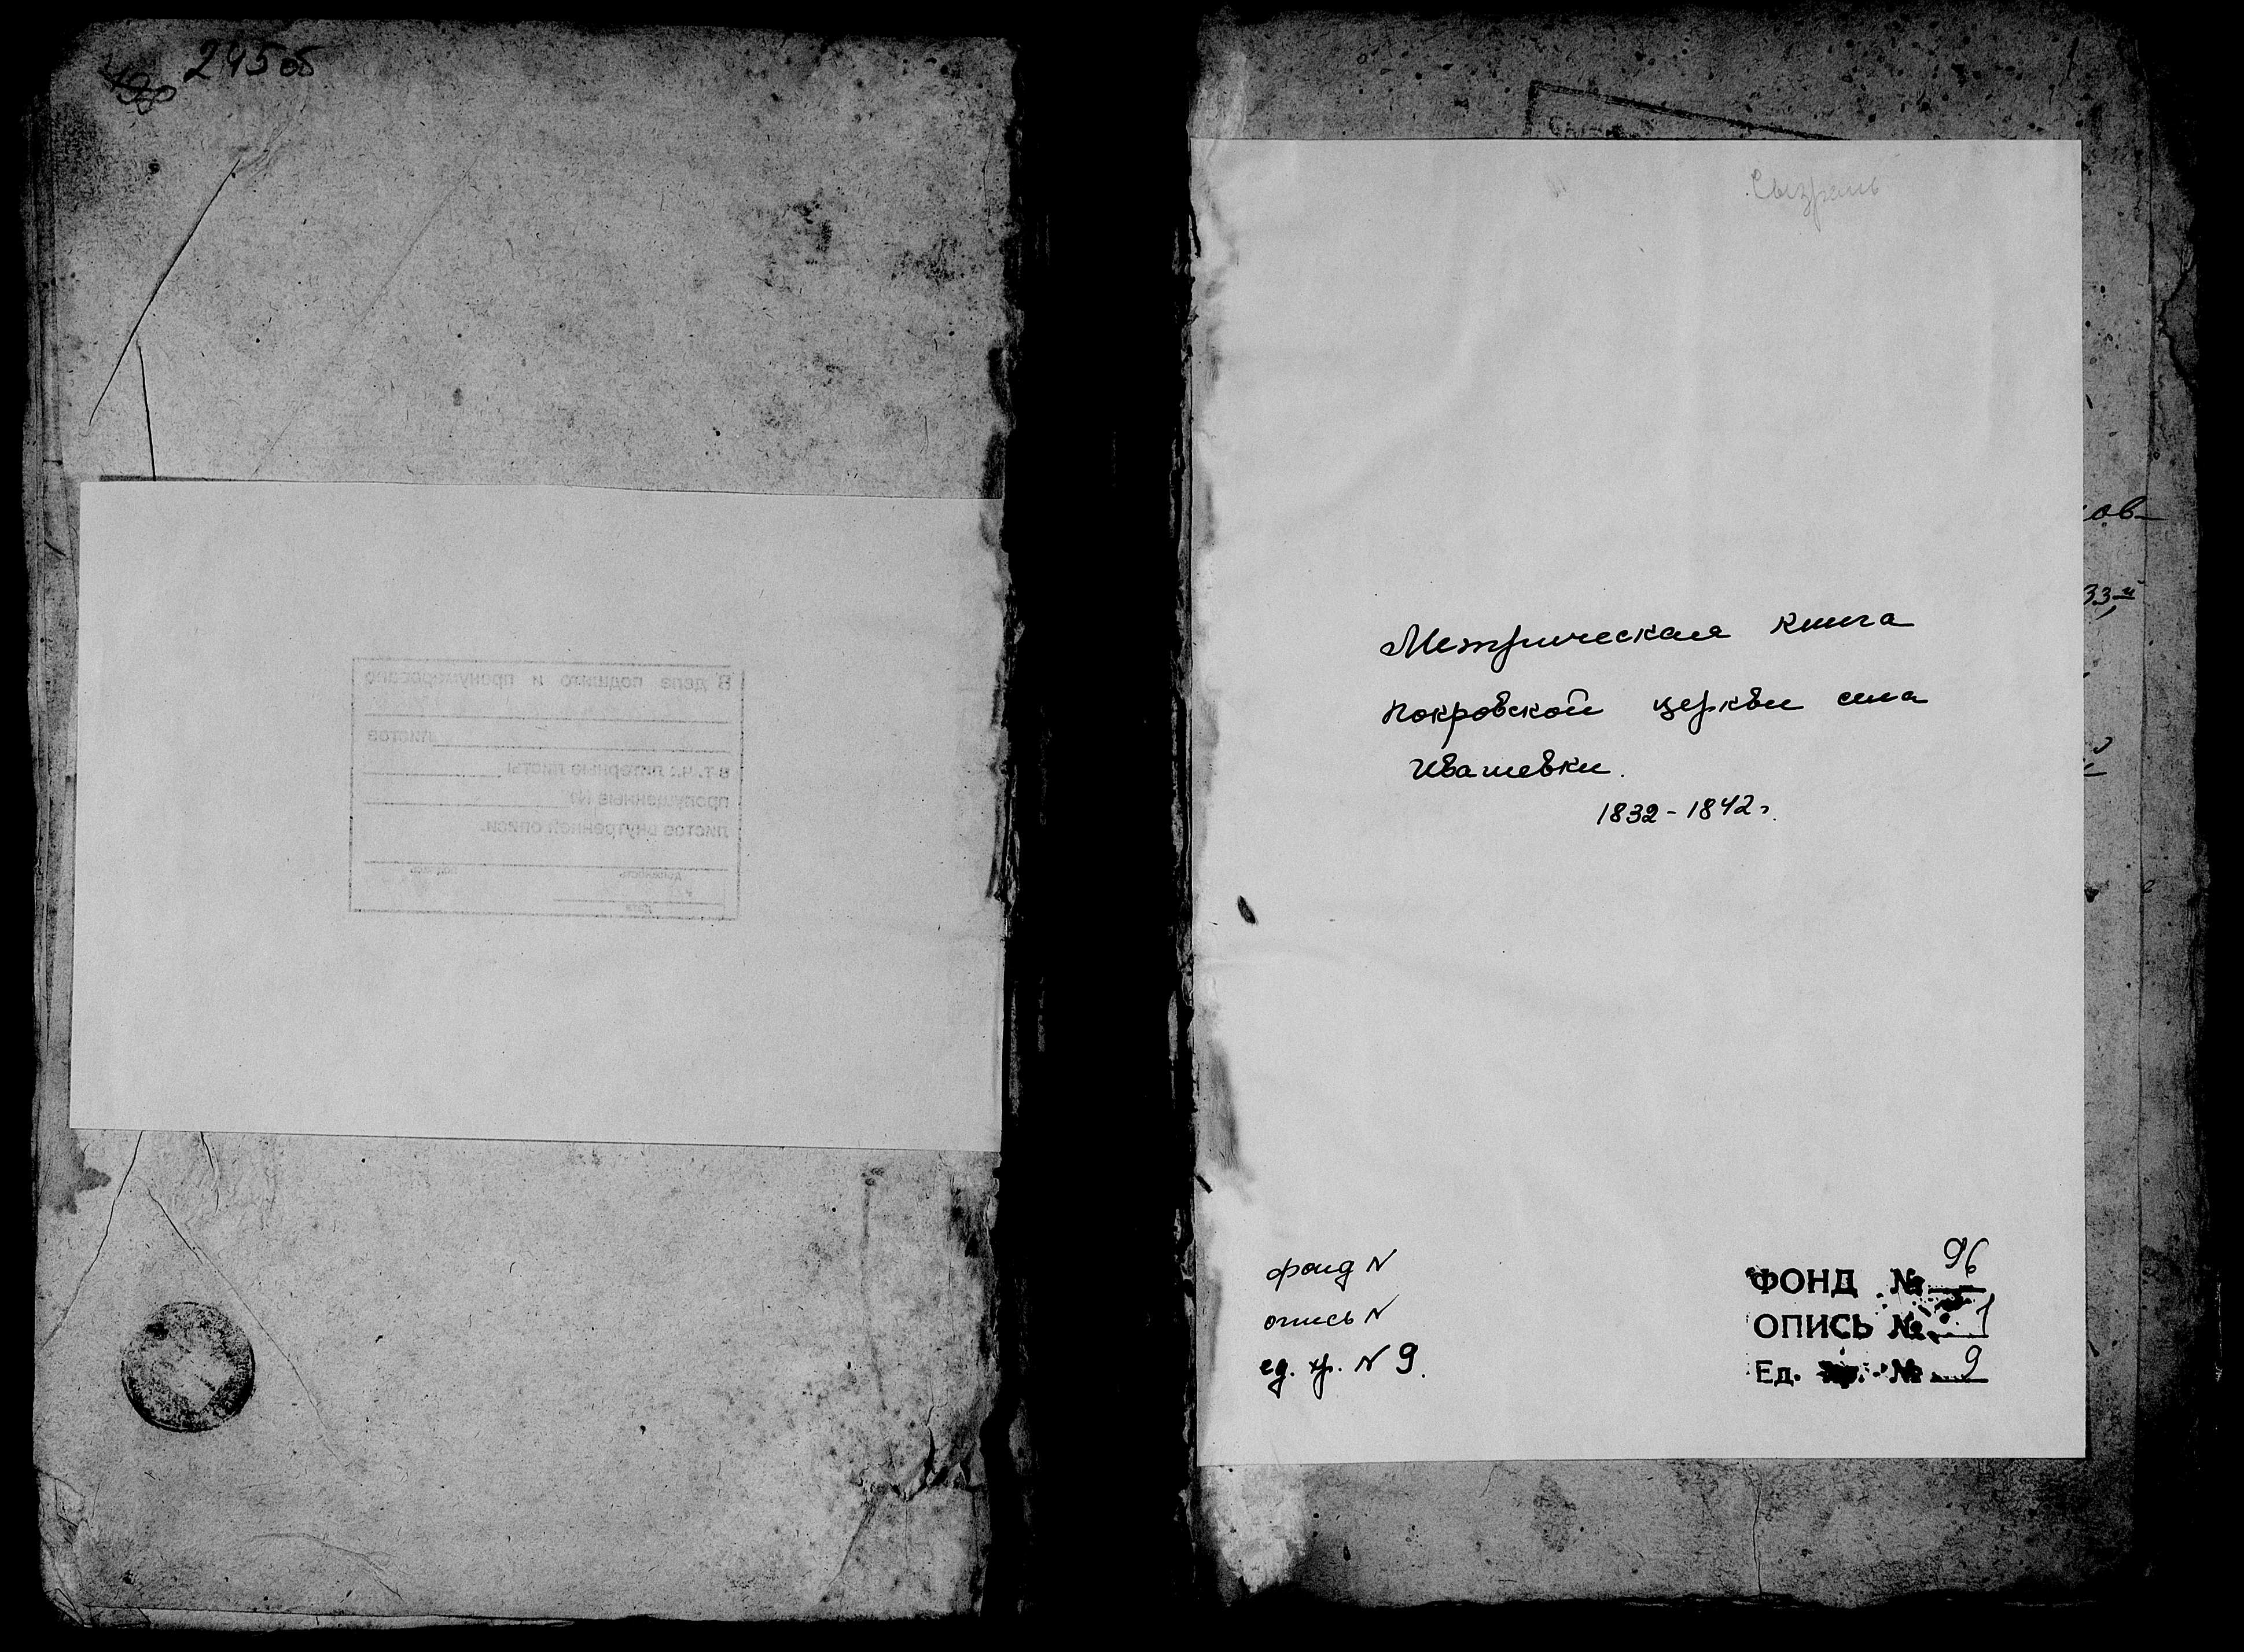 245 об
В деле подшито и пронумеровано
листов
в т. ч.: литерные листы
пропущенные №
листов внутренней описи.
должность подпись
дата
Сызрань
Метрическая книга
покровской церкви села
Ивашевки.
1832-1842г.
ов-
33-й
фонд N
опись N
ед. хр. N 9.
ФОНД № 96
ОПИСЬ № 1
Ед. № 9